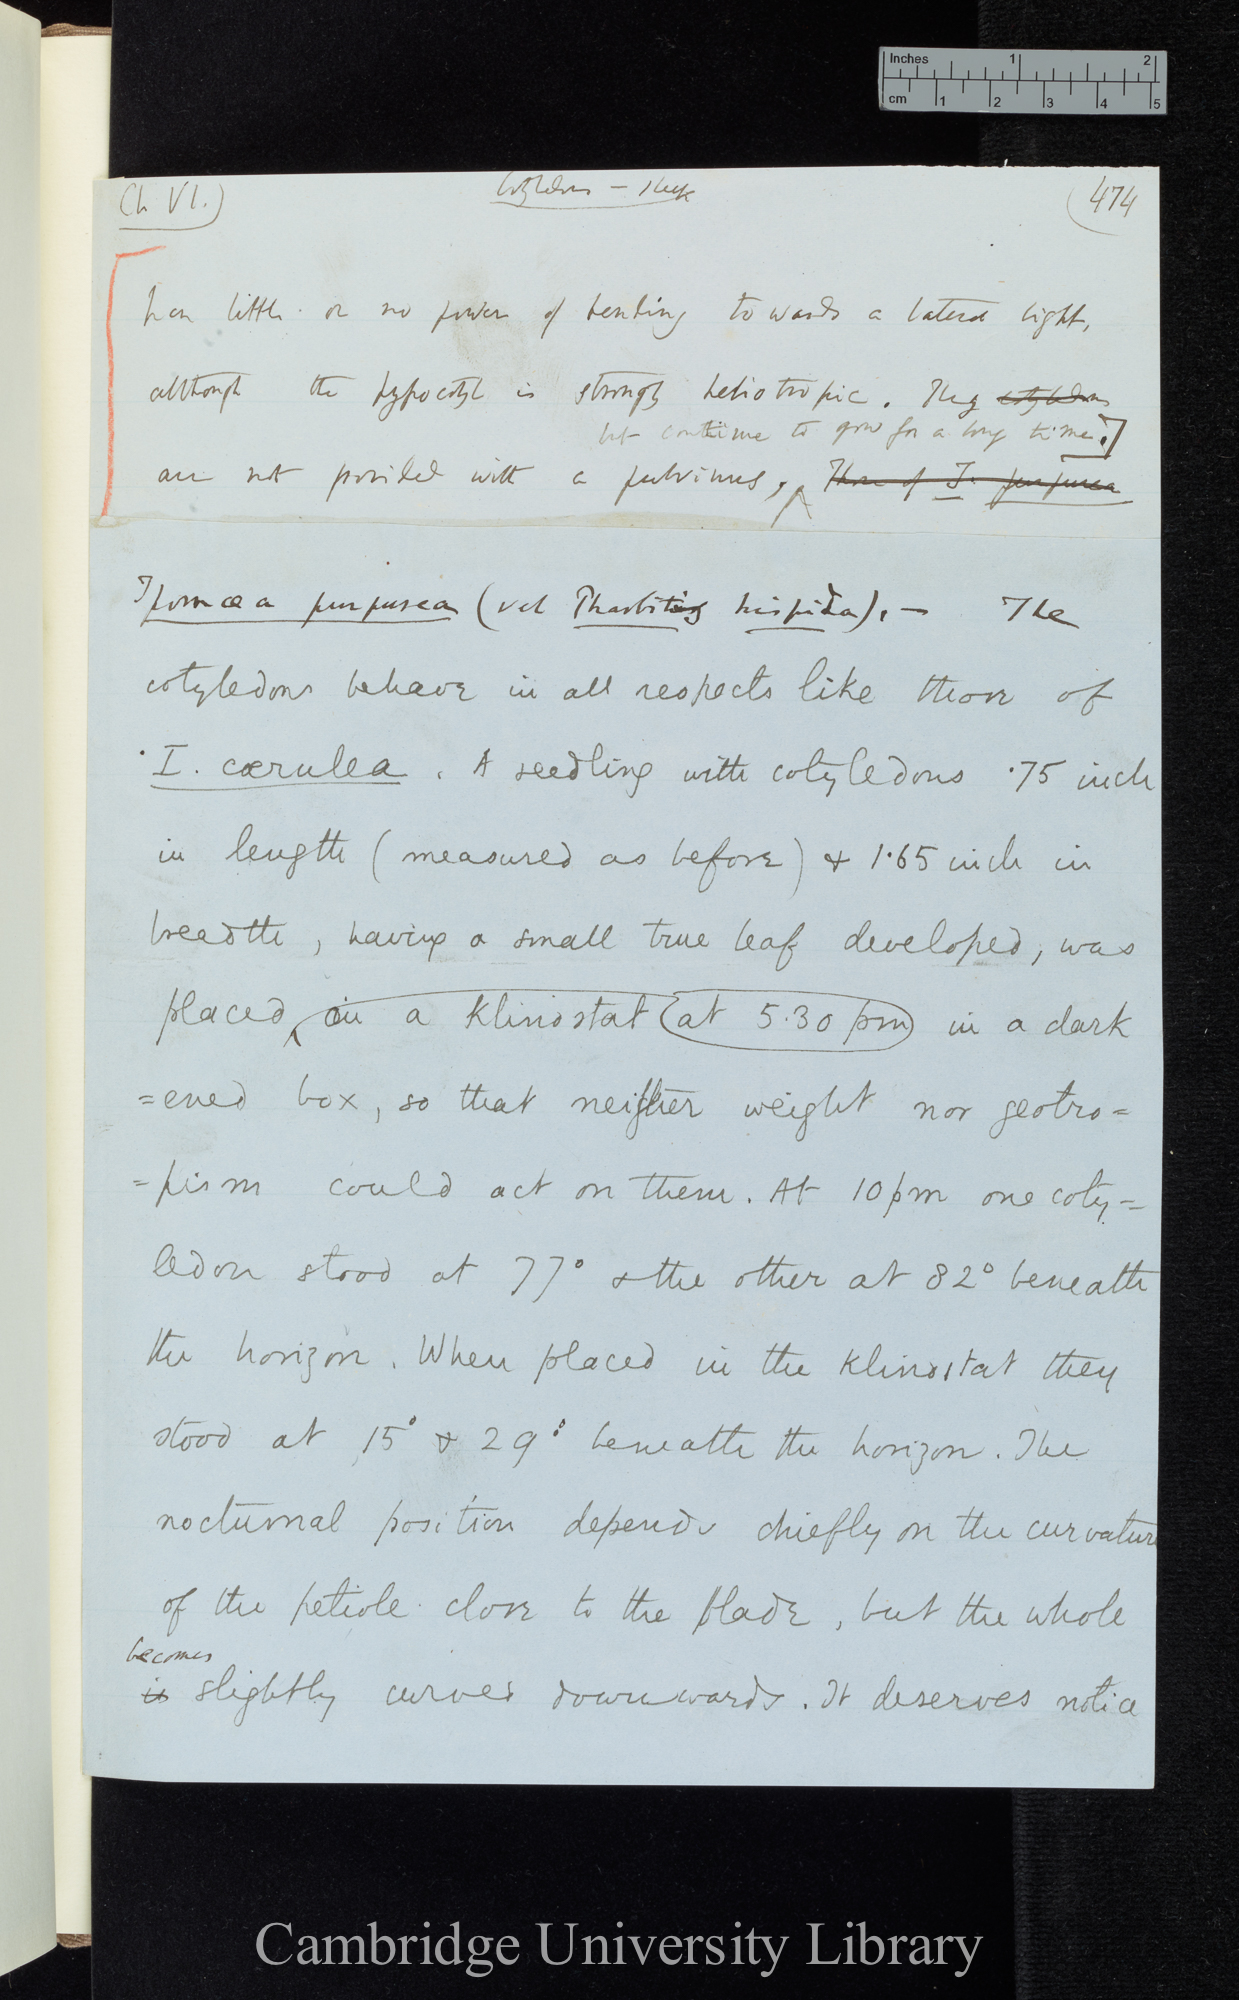 Inches 1 2
cm 1 2 3 4 5
(Ch VI.) Cotyledons – sleep (474
have little or no power of bending towards a lateral light,
although the hypocotyl is strongly heliotropic. They cotyledons
but continue to grow for a long time.]
are not provided with a pulvinus, Those of I. purpurea
Ipomœa purpurea (vel Pharbitis hispida). — The
cotyledons behave in all respects like those of
I. cærulea. A seedling with cotyledons .75 inch
in length (measured as before) & 1.65 inch in
breadth, having a small true leaf developed, was
placed in a Klinostat at 5.30 pm in a dark
=ened box, so that neither weight nor geotro=
=pism could act on them. At 10 pm one coty=
ledon stood at 77° & the other at 82° beneath
the horizon. When placed in the Klinostat they
stood at 15° & 29° beneath the horizon. The
nocturnal position depends chiefly on the curvature
of the petiole close to the blade, but the whole
becomes
is slightly curved downwards. It deserves notice
Cambridge University Library